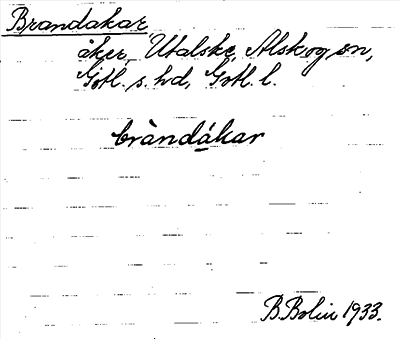 Brandåkar
åker, Utalske, Alskog sn,
Gotl. s. hd, Gotl. l.
bràndákar
B. Bolin 1933.